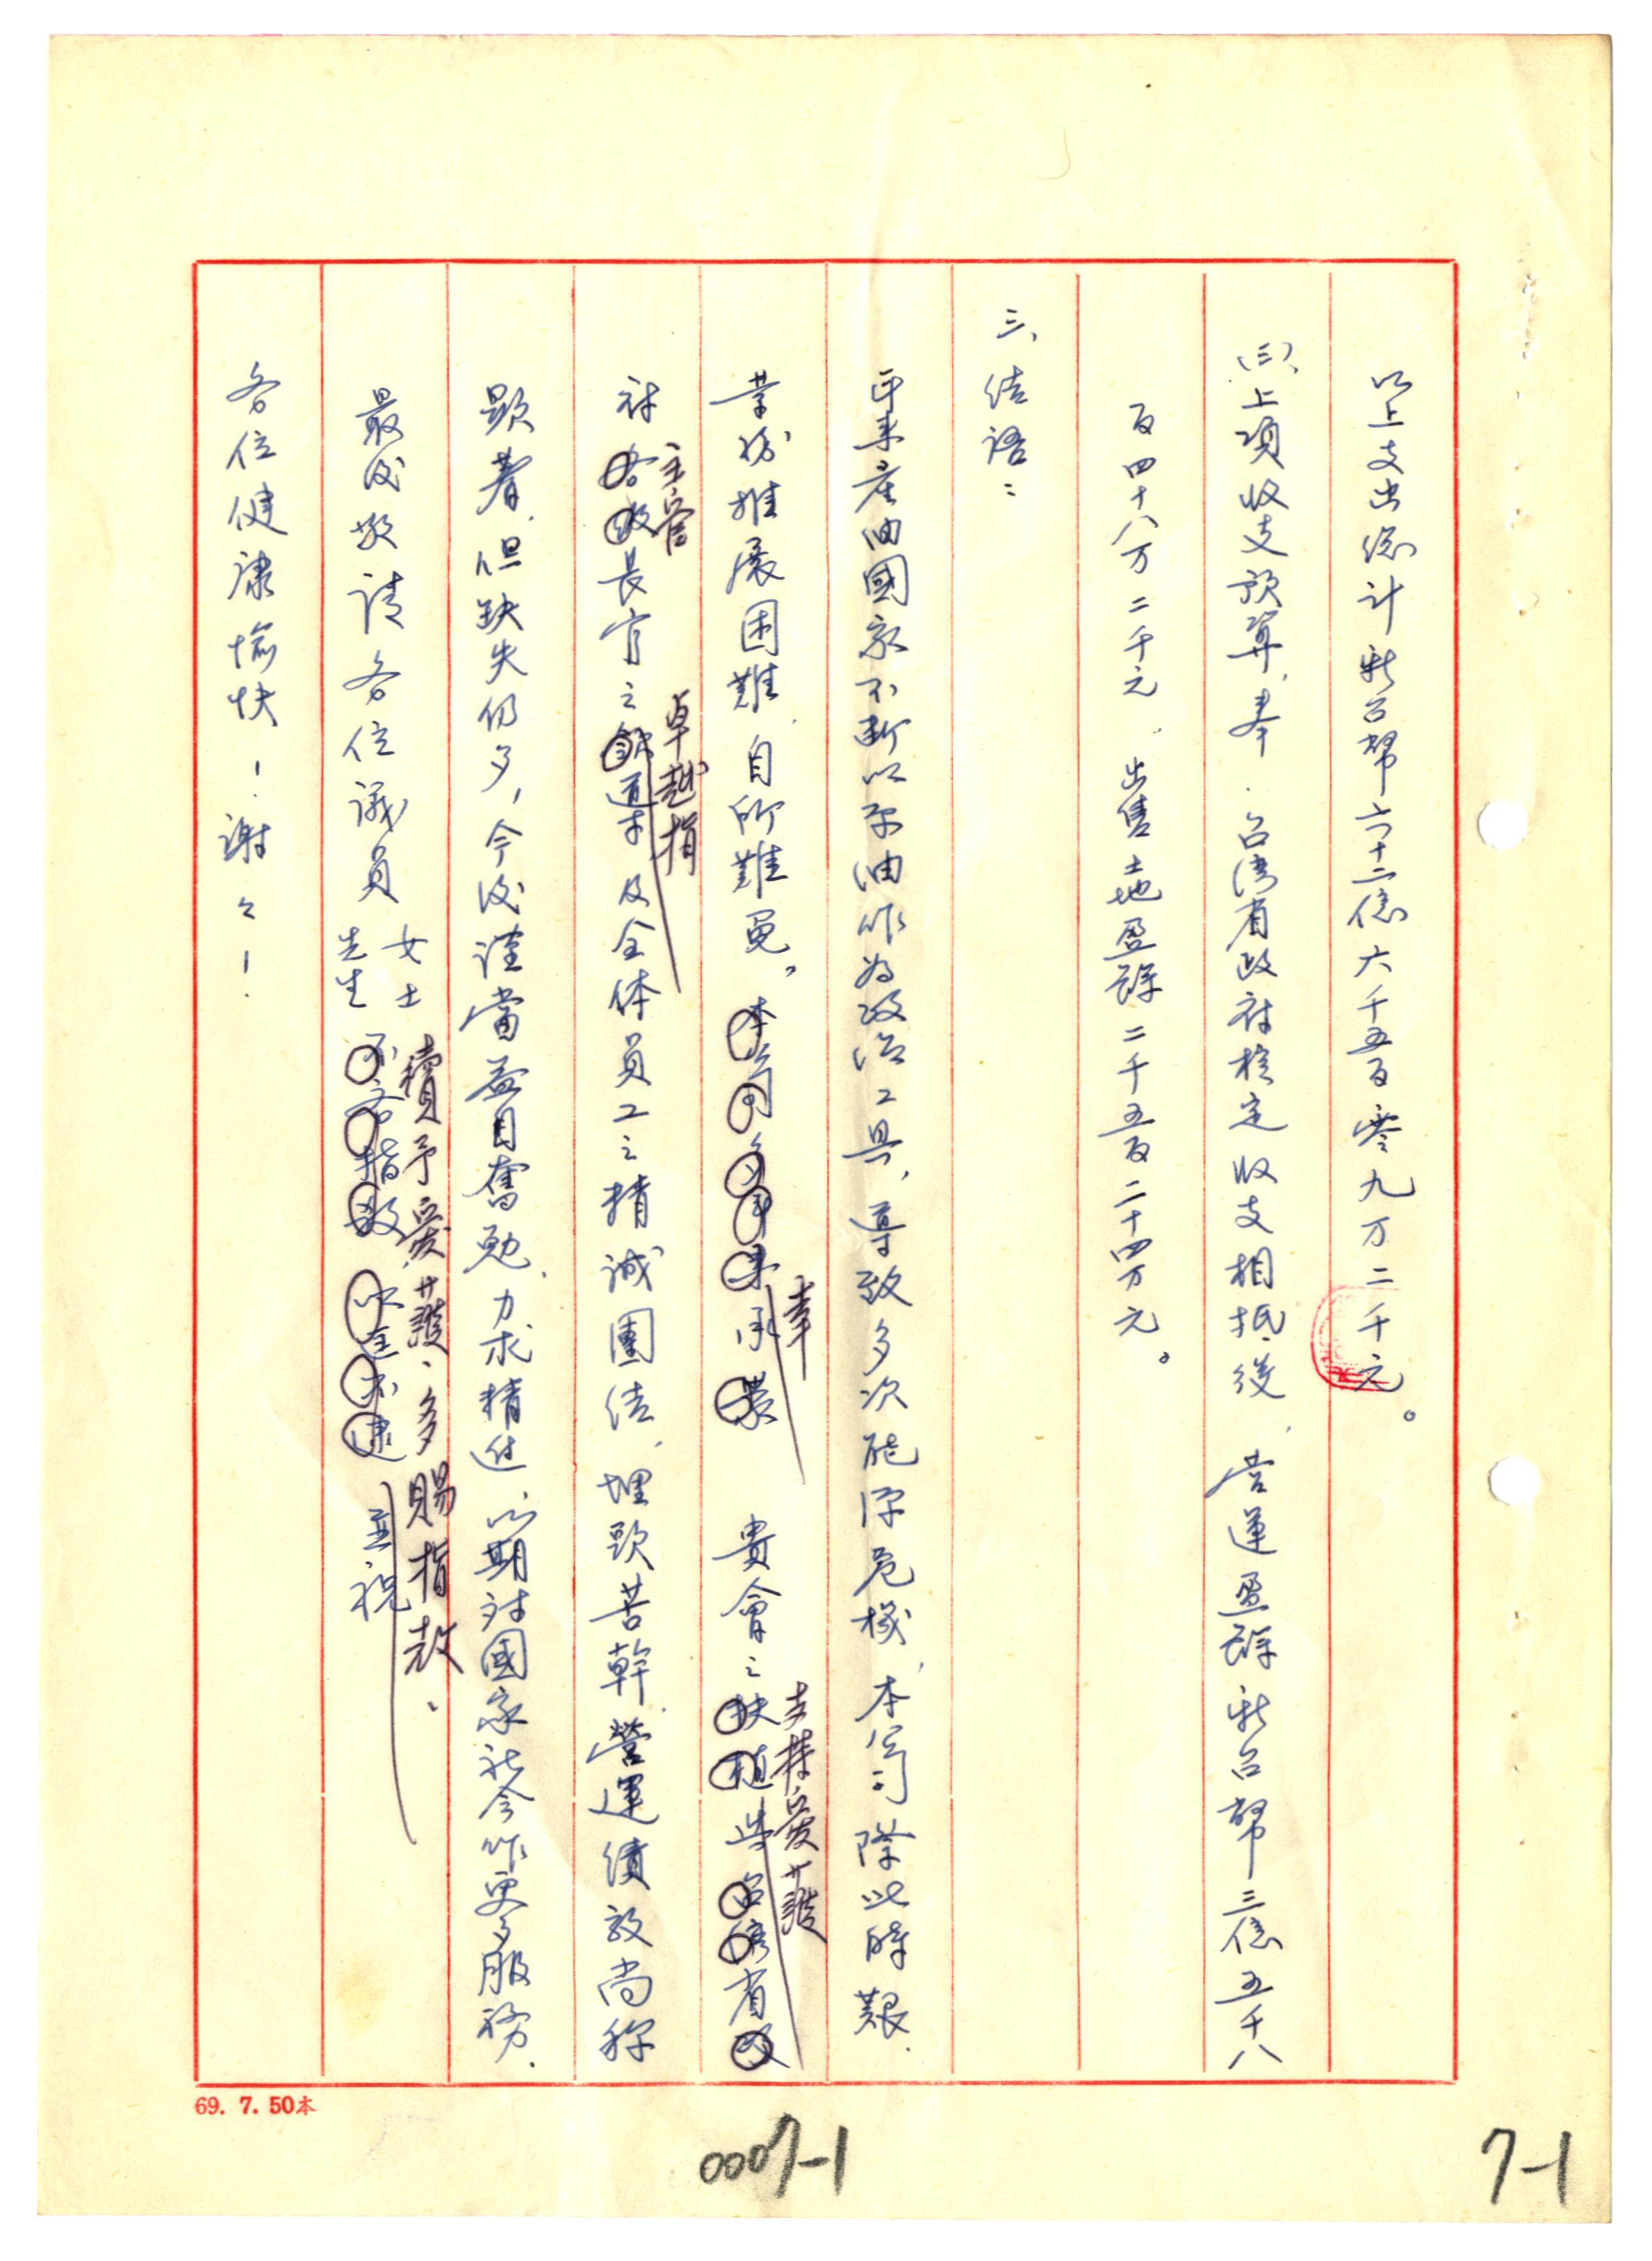 以上支出總計新台幣六十二億六千五百零九万二千元。
(三)、上項收支預算,奉 台湾省政府核定收支相抵後,营運盈餘新台幣三億五千八
百四十八万二千元,出售土地盈餘二千五百二十四万元。
三、結語:
年来產油國家不断以石油作為政治工具,導致多次能源危機,本公司際此時艱,
業務推展困難,自所難免。本公司多年来承蒙 貴會之扶植与台湾省政
幸
支持、愛護
府各級長官之領導及全体員工之精誠團结,埋頭苦幹,營運績效尚称
主管
卓越指
顯著,但缺失仍多,今後謹當益自奮勉,力求精进,以期对國家社会作更多服務。
最後敬請各位議員 女士 先生 不吝指教,以匡不逮,並祝
續予愛護、多賜指教。
各位健康愉快!謝々!
69. 7. 50本
0007-1
7-1